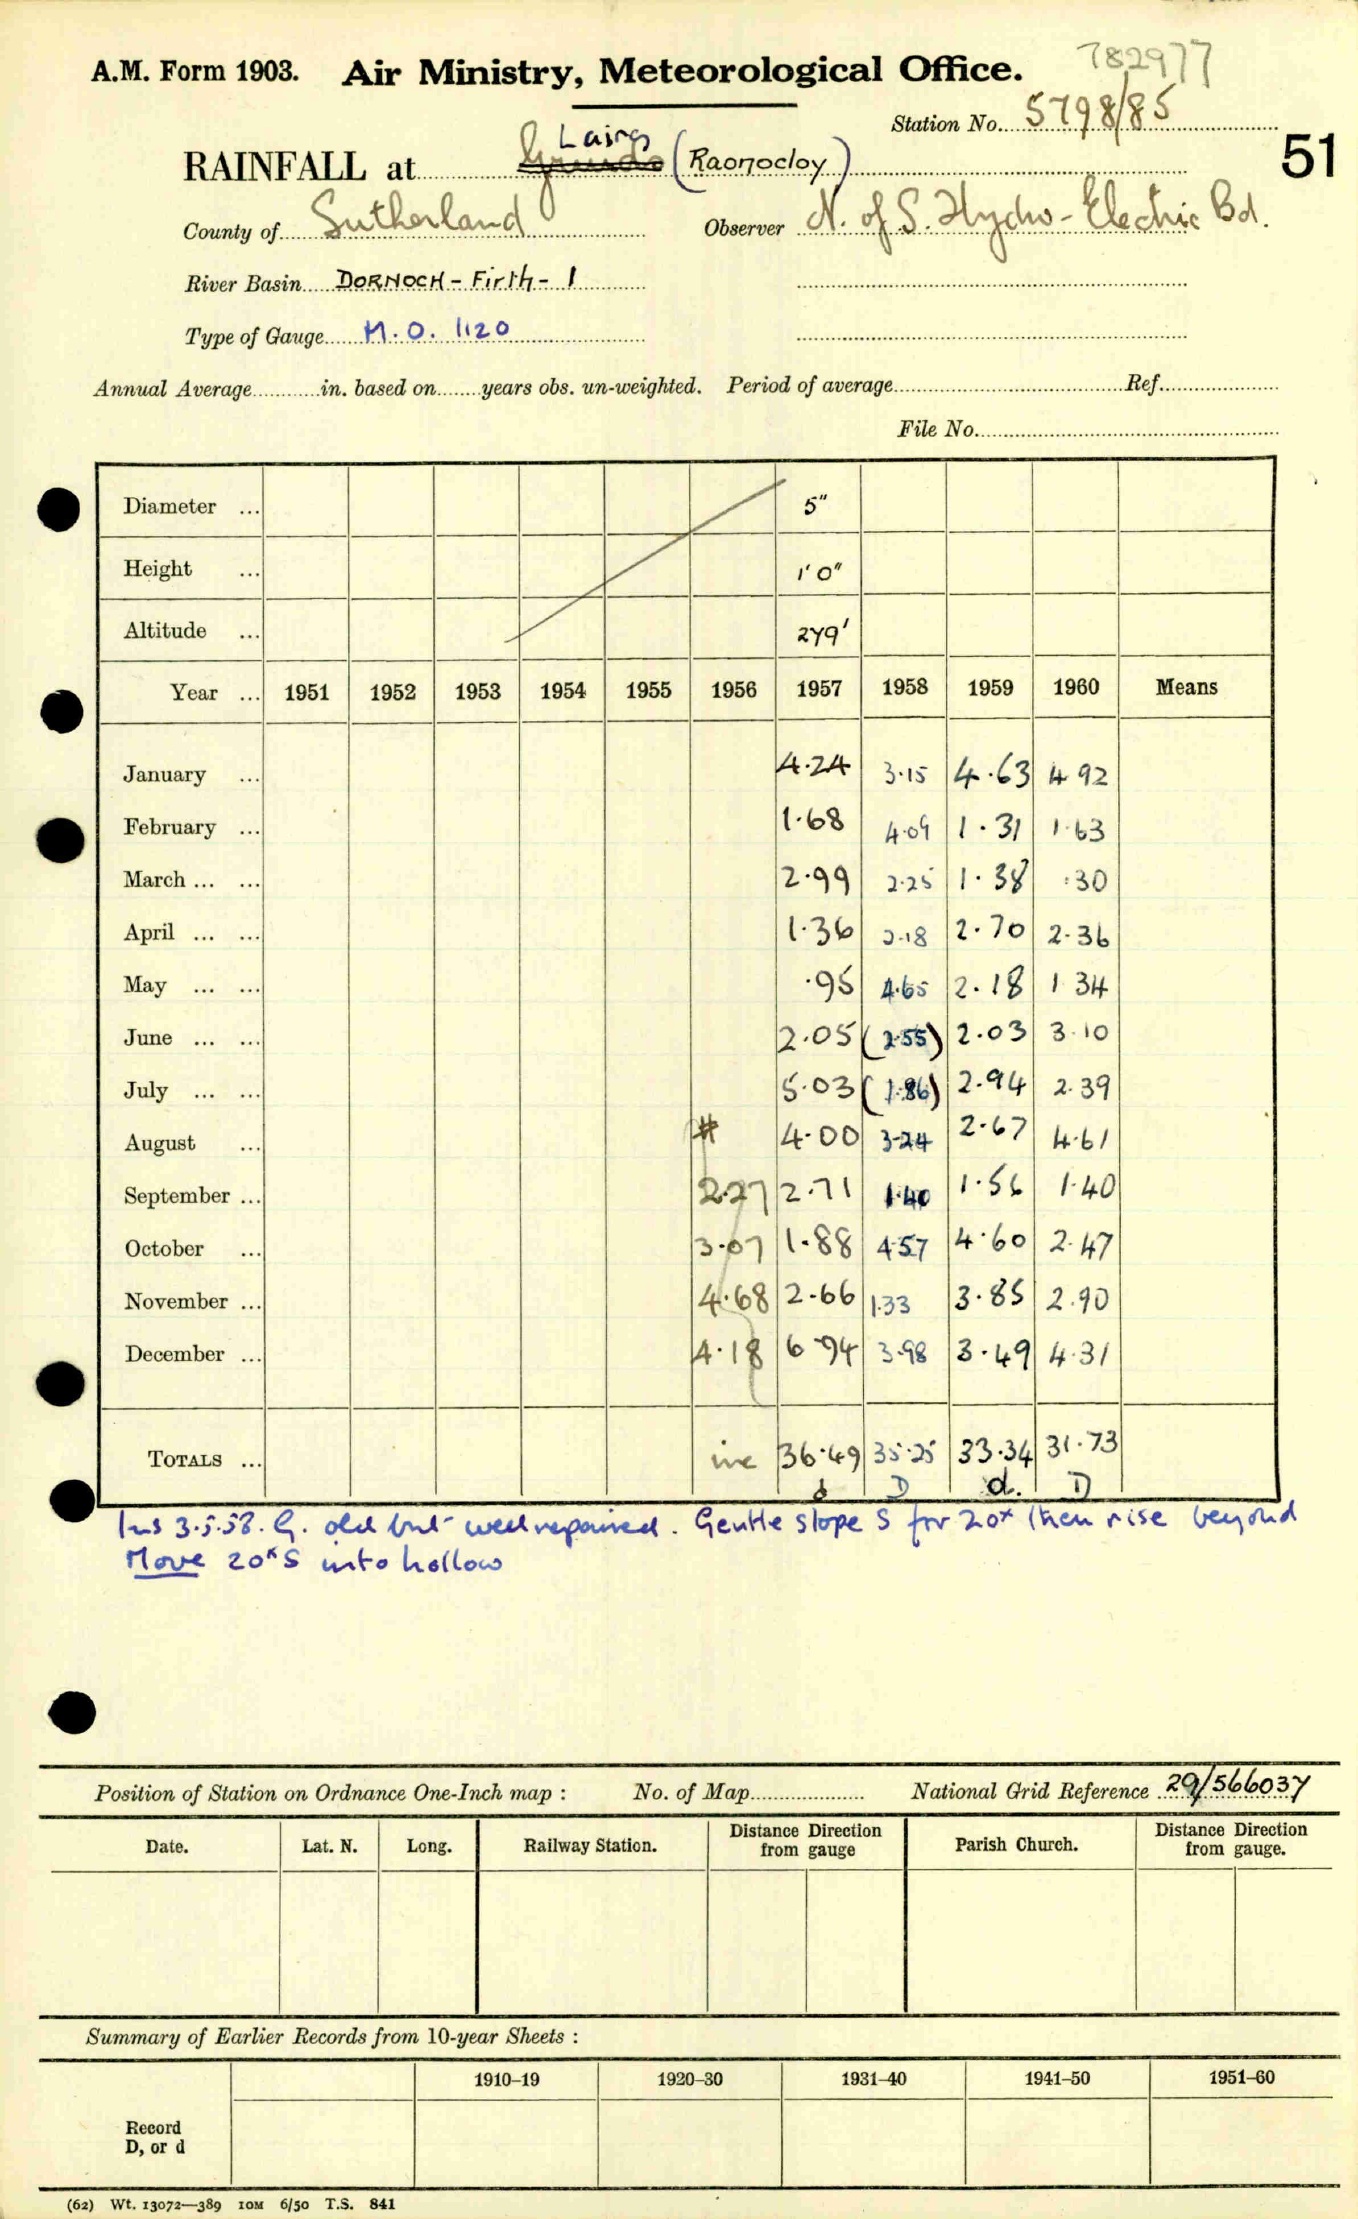 782977
A.M. Form 1903. Air Ministry, Meteorological Office.
Station No. 5798/85
51
RAINFALL at Lairg (Raonocloy)
County of Sutherland Observer N. of S. Hydro-Electric Bd.
River Basin DORNOCH - Firth - 1
Type of Gauge M.O. 1120
Annual Average in. based on years obs. un-weighted. Period of average Ref.
File No.
Diameter ... 5"
Height ... 1' 0"
Altitude ... 279'
Year ... 1951 1952 1953 1954 1955 1956 1957 1958 1959 1960 Means
January ... 4.24 3.15 4.63 4 92
February ... 1.68 4.09 1.31 1.63
March ... ... 2.99 2.25 1.38 .30
April ... ... 1.36 2.18 2.70 2.36
May ... ... .95 4.65 2.18 1 34
June ... ... 2.05 (2.55) 2.03 3.10
July ... ... 5.03 (1.86) 2.94 2.39
August ... # 4.00 3.24 2.67 4.61
September ... 2.27 2.71 1.40 1.56 1.40
October ... 3.07 1.88 4.57 4.60 2.47
November ... 4.68 2.66 1.33 3.85 2.90
December ... 4.18 6.94 3.98 3.49 4.31
TOTALS ... inc 36.49 35.25 33.34 31.73
d D d. D
Ins 3.5.58. G. old but well repaired. Gentle slope S for 20ˣ then rise beyond
Move 20ˣ S into hollow
Position of Station on Ordnance One-Inch map : No. of Map National Grid Reference 29/566037
Date. Lat. N. Long. Railway Station. Distance from Direction gauge Parish Church. Distance from Direction gauge.
Summary of Earlier Records from 10-year Sheets :
1910–19 1920–30 1931–40 1941–50 1951–60
Record
D, or d
(62) Wt. 13072—389 10M 6/50 T.S. 841